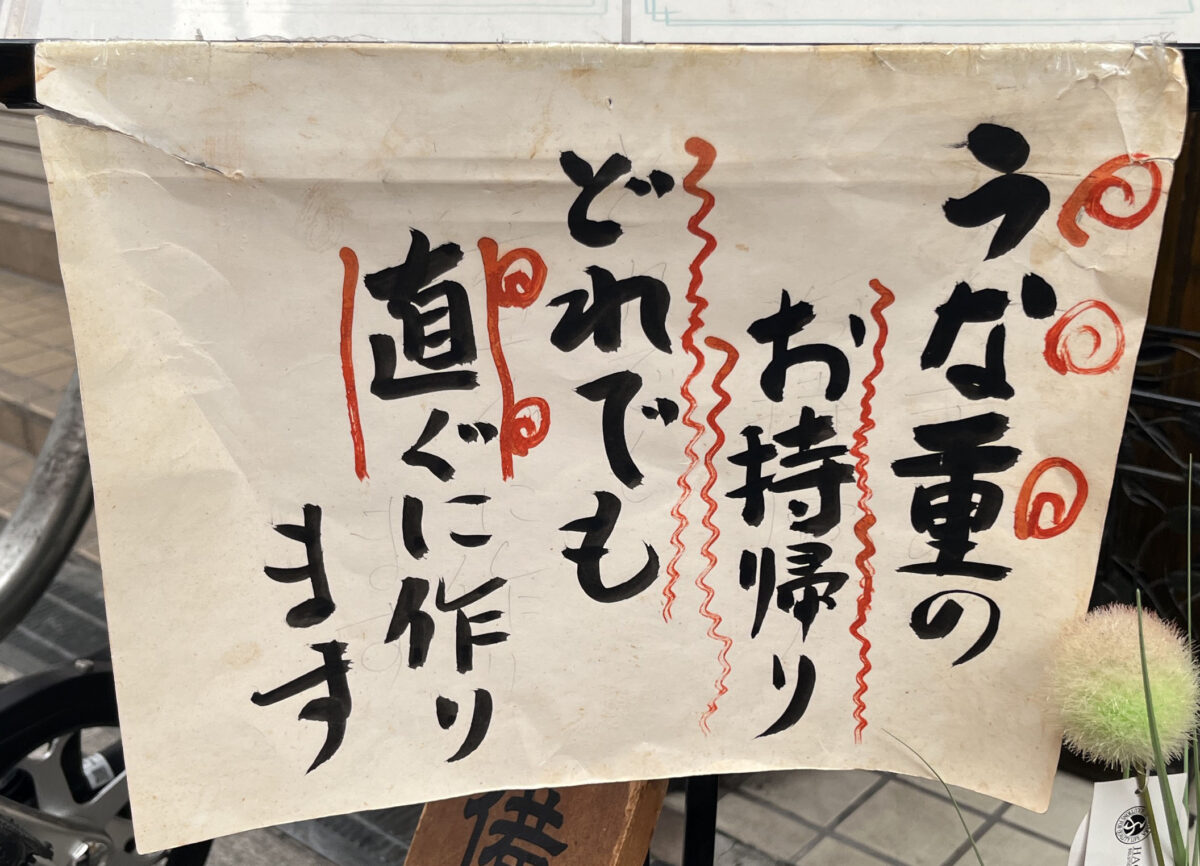 うな重の
お持帰り
どれでも
直ぐに作り
ます
備